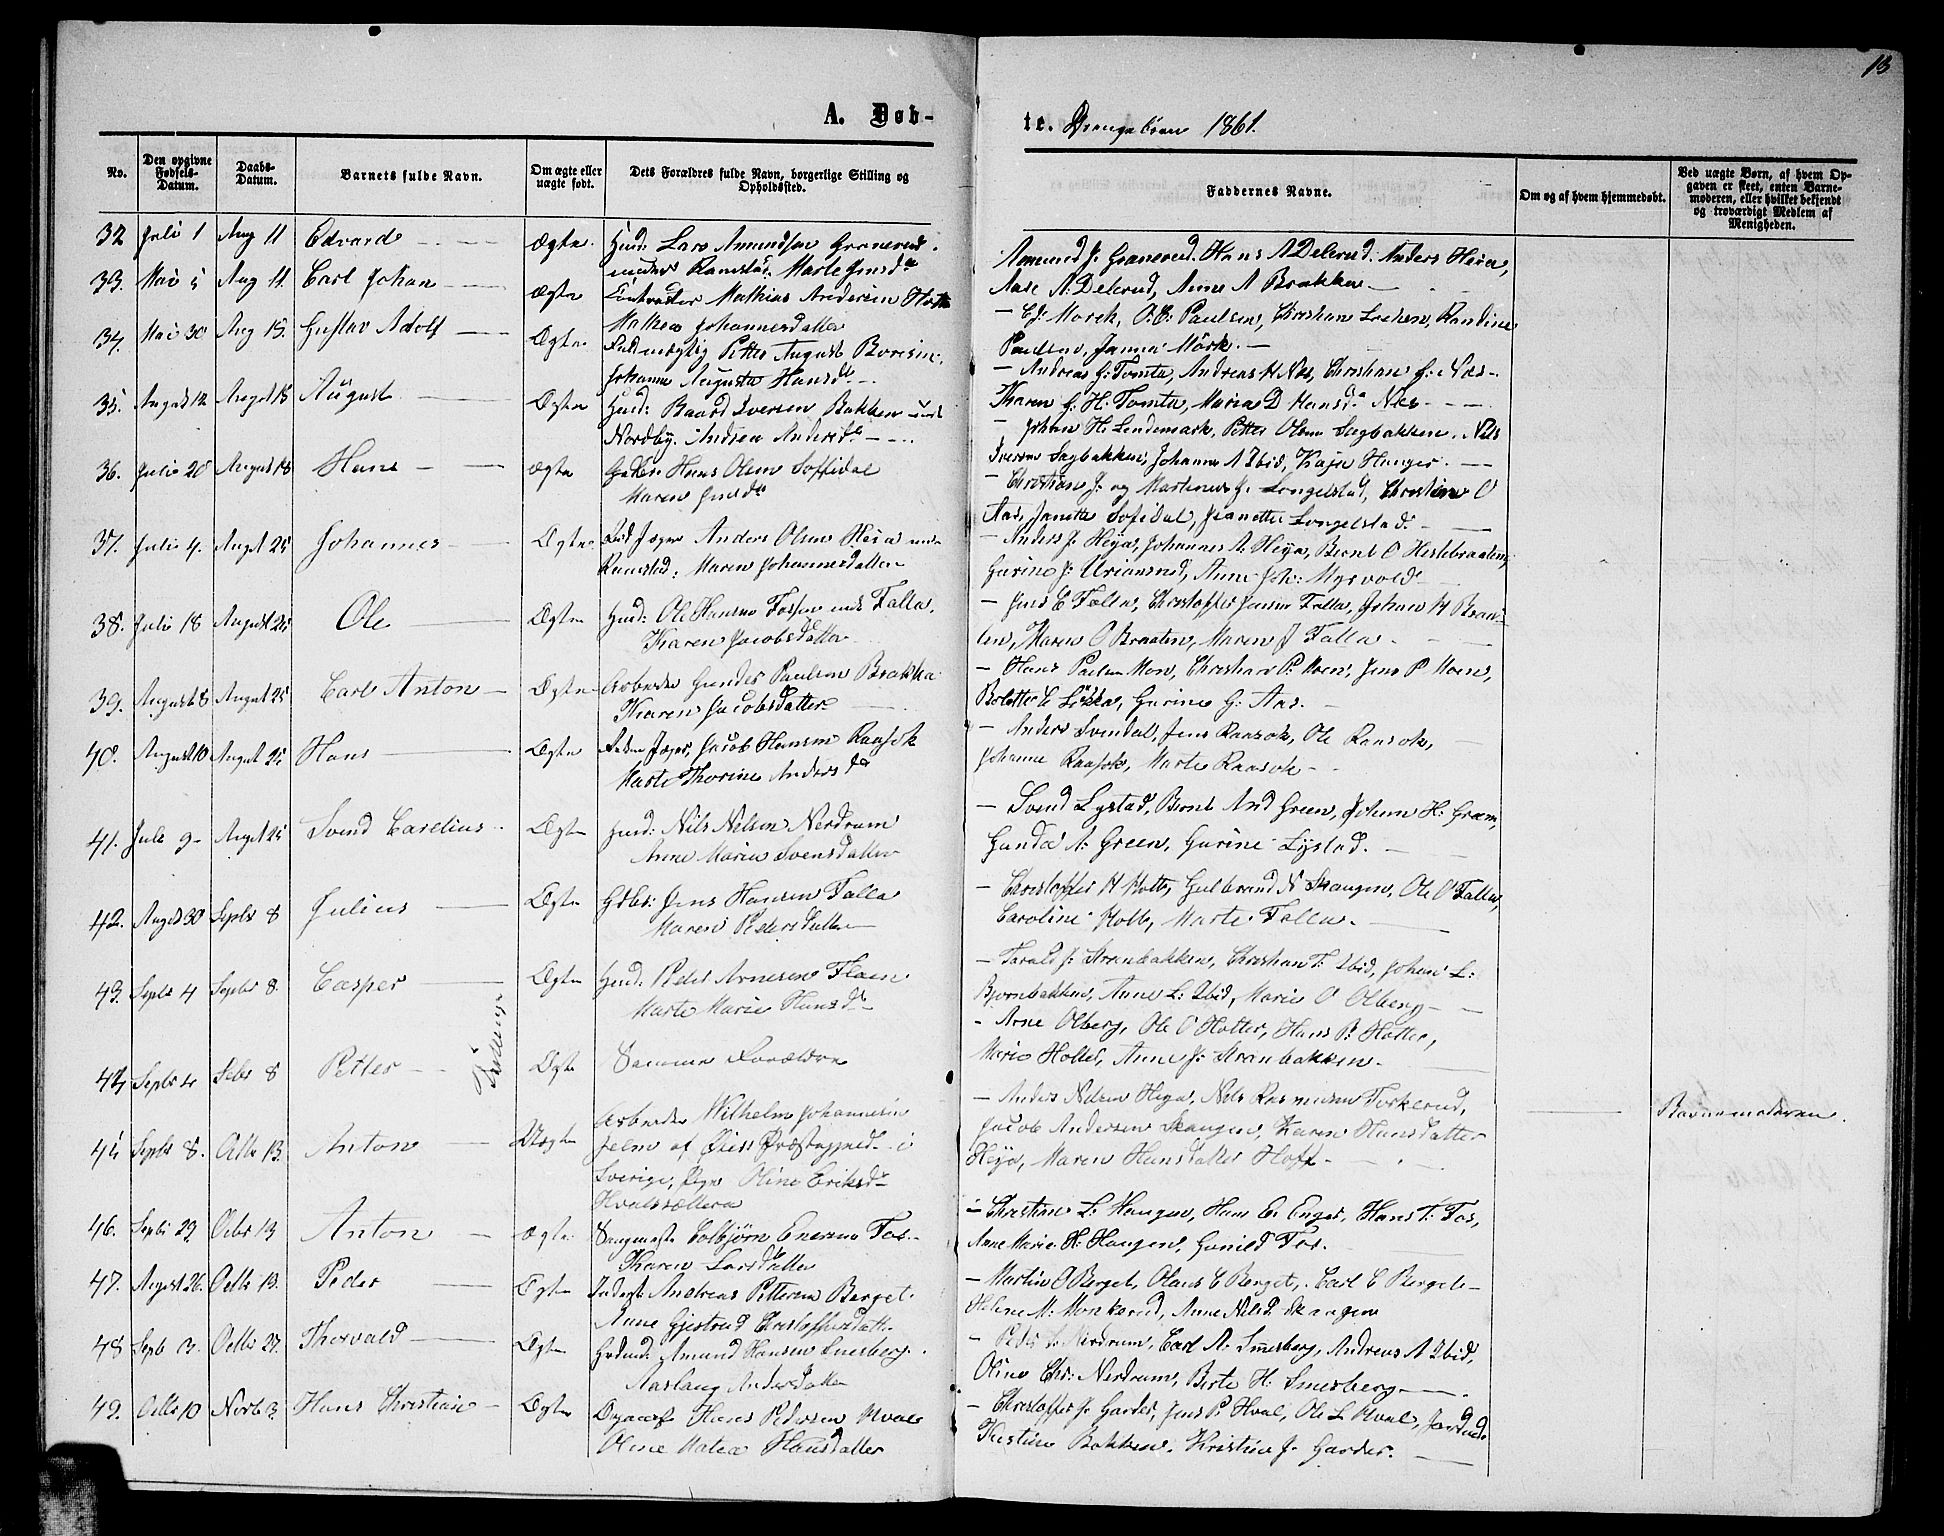 13
A. Døb-
te. Drengebørn 1861.
No.
Den opgivne Fødsels-Datum.
Daabs-Datum.
Barnets fulde Navn.
Om ægte eller uægte født.
Dets Forældres fulde Navn, borgerlige Stilling og Opholdssted.
Faddernes Navne.
Om og af hvem hjemmedøbt.
Ved uægte Børn, af hvem Opgaven er skeet, enten Barnemoderen, eller hvilket bekjendt og troværdigt Medlem af Menigheden.
32 Juli 1 Aug 11 Edvard Ægte Husm: Lars Amundsen Granerud
under Ramstad. Marte Jensdr
Amund J. Granerud. Hans A Delerud. Anders Heia,
Aase A. Delerud, Anne A Brakken
33. Mai 5 Aug 11. Carl Johan Ægte Mathias Andersen Holt
Mathea Johannesdatter
C J. Morch, O. C. Paulsen, Christian Lochen, Randine
Paulsen, Janna Mörk.
34. Mai 30 Aug 15. Gustav Adolf Ægte Fuldmægtig Petter August
Johanne Augusta Hansdr
Andreas G. Tomta, Andreas H Næs, Christian G. Næs
Karen G. H. Tomta, Maria D Hansdr Næs
35. August 12 August 18 August Ægte Husm: Baard Iversen Bakken und
Nordby. Andrea Andersdr
Johan H. Lindemark, Petter Olsen Sagbakken. Nils
Iversen Sagbakken, Johanne N Ibid, Kaja Hanger.
36. Julii 20 August 18 Hans Ægte Gdbr: Hans Olsen Soffidal
Maren Jensdr
Christian J. og Martinus J. Longelstad, Christian O
Aas, Janette Sofidal, Jeanette Longelstad.
37. Julii 4. Augst 25 Johannes Ægte Anders Olsen Heia under
Ramstad. Maren Johannesdatter
Anders J. Heya, Johannes A. Heya, Bernt O Hestebraaten,
Gurine J. Uriansrud, Anne Joh: Myrvold
38. Julii 18 August 25 Ole Ægte Husm: Ole Hansen Fossen und Falla.
Karen Jacobsdatter
Jens C Falla, Christoffer Jensen Falla, Johan H Braa-
ten, Karen O Braaten, Maren J Falla.
39. August 8 August 25 Carl Anton Ægte Arbeider Gunder Paulsen Brakka
Karen Jacobsdatter
Hans Paulsen Moen, Christian P. Moen, Jens P Moens,
Bolette C Løkka, Gurine G. Aas.
40. August 10 August 25 Hans Ægte Jacob Hansen Raasok
Marte Thorine Andersdr
Anders Svendal, Jens Raasok, Ole Raasok,
Johanne Raasok, Marte Raasok
41. Juli 9 Augst 25 Svend Carelius Ægte Husm: Nils Nilsen Nerdrum
Anne Marie Svensdatter
Svend Lystad, Bernt And Green, Johan H. Green,
Gunda A. Green, Gurine Lystad.
42. Augst 30 Septbr 8 Julius Ægte Gdbr: Jens Hansen Falla
Maren Pedersdatter
Christoffer H Holt, Gulbrand N Skaugen, Ole O Falla,
Caroline Holt, Marte Falla.
43. Septbr 4 Septbr 8. Casper Ægte Husm: Peder Arnesen Floen
Marte Marie Hansdr
Tvillinger
Torald J. Strandbakken, Christian T. Ibid, Johan L:
Bjørnbakken, Anne L: Ibid, Marie O Olberg
44 Septbr 4 Sebr 8 Petter Ægte Samme Forældre
Arne Olberg, Ole O Holter, Hans P. Holter,
Marie Holter, Anne J. Strandbakken.
45 Septbr 8. Octbr 13. Anton Uægte Arbeider Wilhelm Johannesen
Præstegjeld i
Sverige, Pige Oline Eriksdr
Hvalssætteren
Anders Nilsen Heya, Nils Rasmussen Torkerud,
Jacob Andersen Skaugen, Karen Hansdatter
Heya, Maren Hansdatter Hoff.
Barnemoderen.
46. Septbr 29 Octbr 13 Anton Ægte Saugmester Colbjørn Enersen Fos
Karen Larsdatter
Christian L. Haugen, Hans C. Enger, Hans T. Fos,
Anne Marie H. Haugen, Gunild Fos.
47. August 26. Octbr 13. Peder Ægte Inderst Andreas Pettersen Berget.
Anne Gjertrud Christoffersdatter
Martin O Berget, Olaus C Berget, Carl C Berget
Helene M. Monkerud, Anne Nilsd. Skaugen
48 Septb 13. Octbr 27. Thorvald Ægte Amund Hansen Smesberg.
Aaslaug Andersdatter
Peder L. Nerdrum, Carl A. Smesberg, Andreas A Ibid,
Oline Chr: Nerdrum, Berte H: Smesberg
49. Octbr 10 Novbr 3. Hans Christian Ægte Hans Pedersen Hval
Oline Matea Hansdatter
Christoffer J. Garder, Jens P. Hval, Ole L Hval,
Kristine Bakken. Kristine J. Garder.